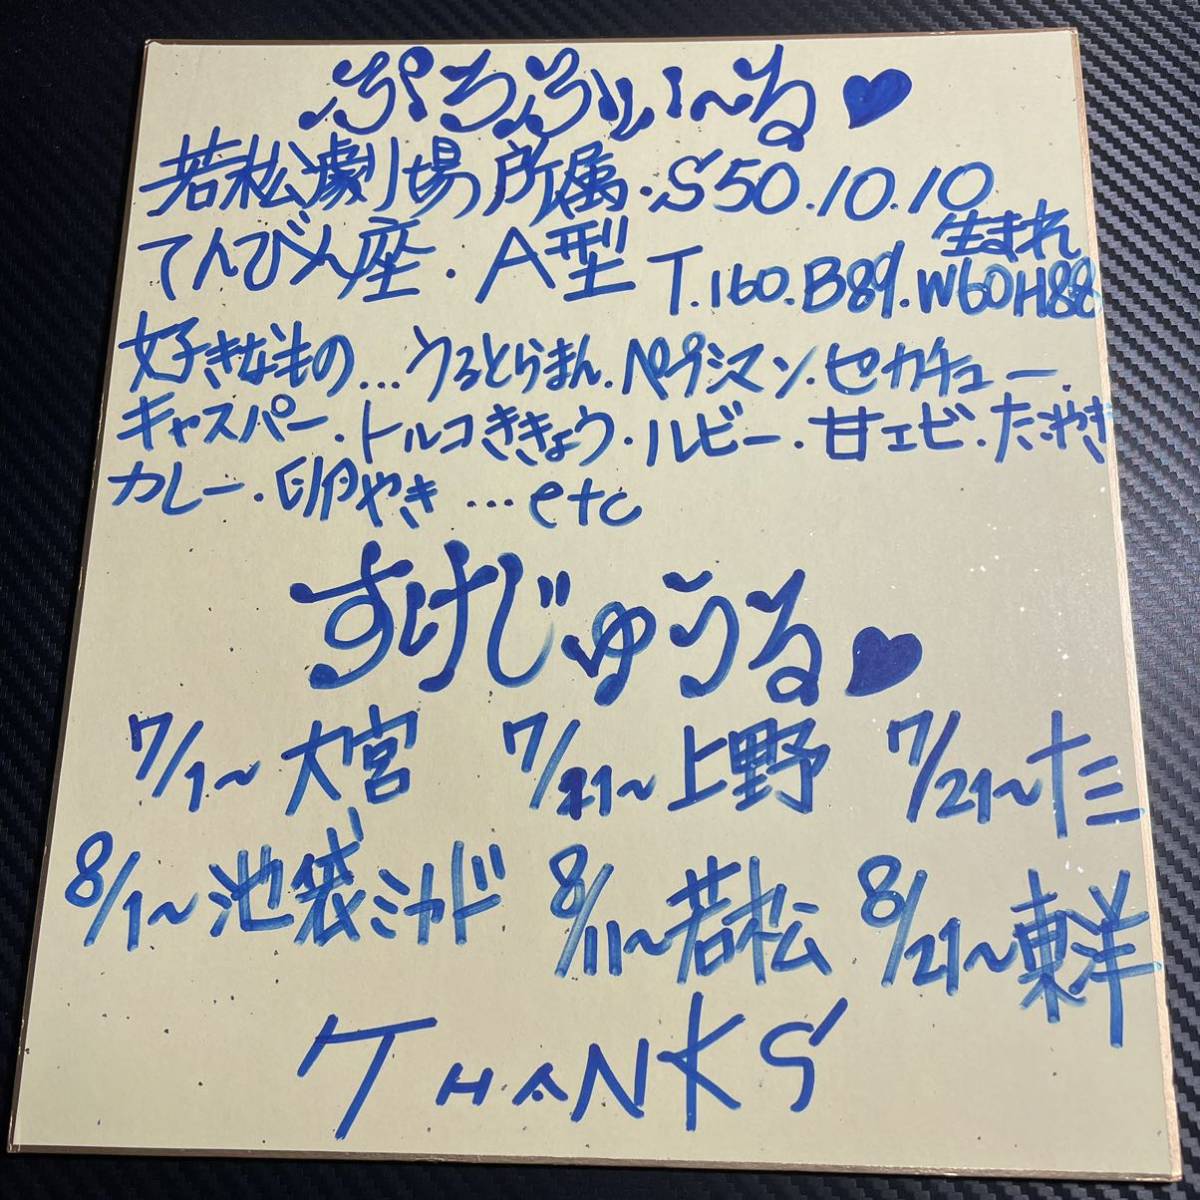 ぷろふぃーる♥
若松劇場所属・S50.10.10
生まれ
てんびん座・A型 T.160.B89.W60H88
好きなもの…うるとらまん.ペプシマン・セカチュー.
キャスパー・トルコききょう・ルビー・甘エビ・たいやき
カレー・卵やき…etc
すけじゅうる♥
7/1〜大宮 7/11〜上野 7/21〜十三
8/1〜池袋ミカド 8/11〜若松 8/21〜東洋
THANKS